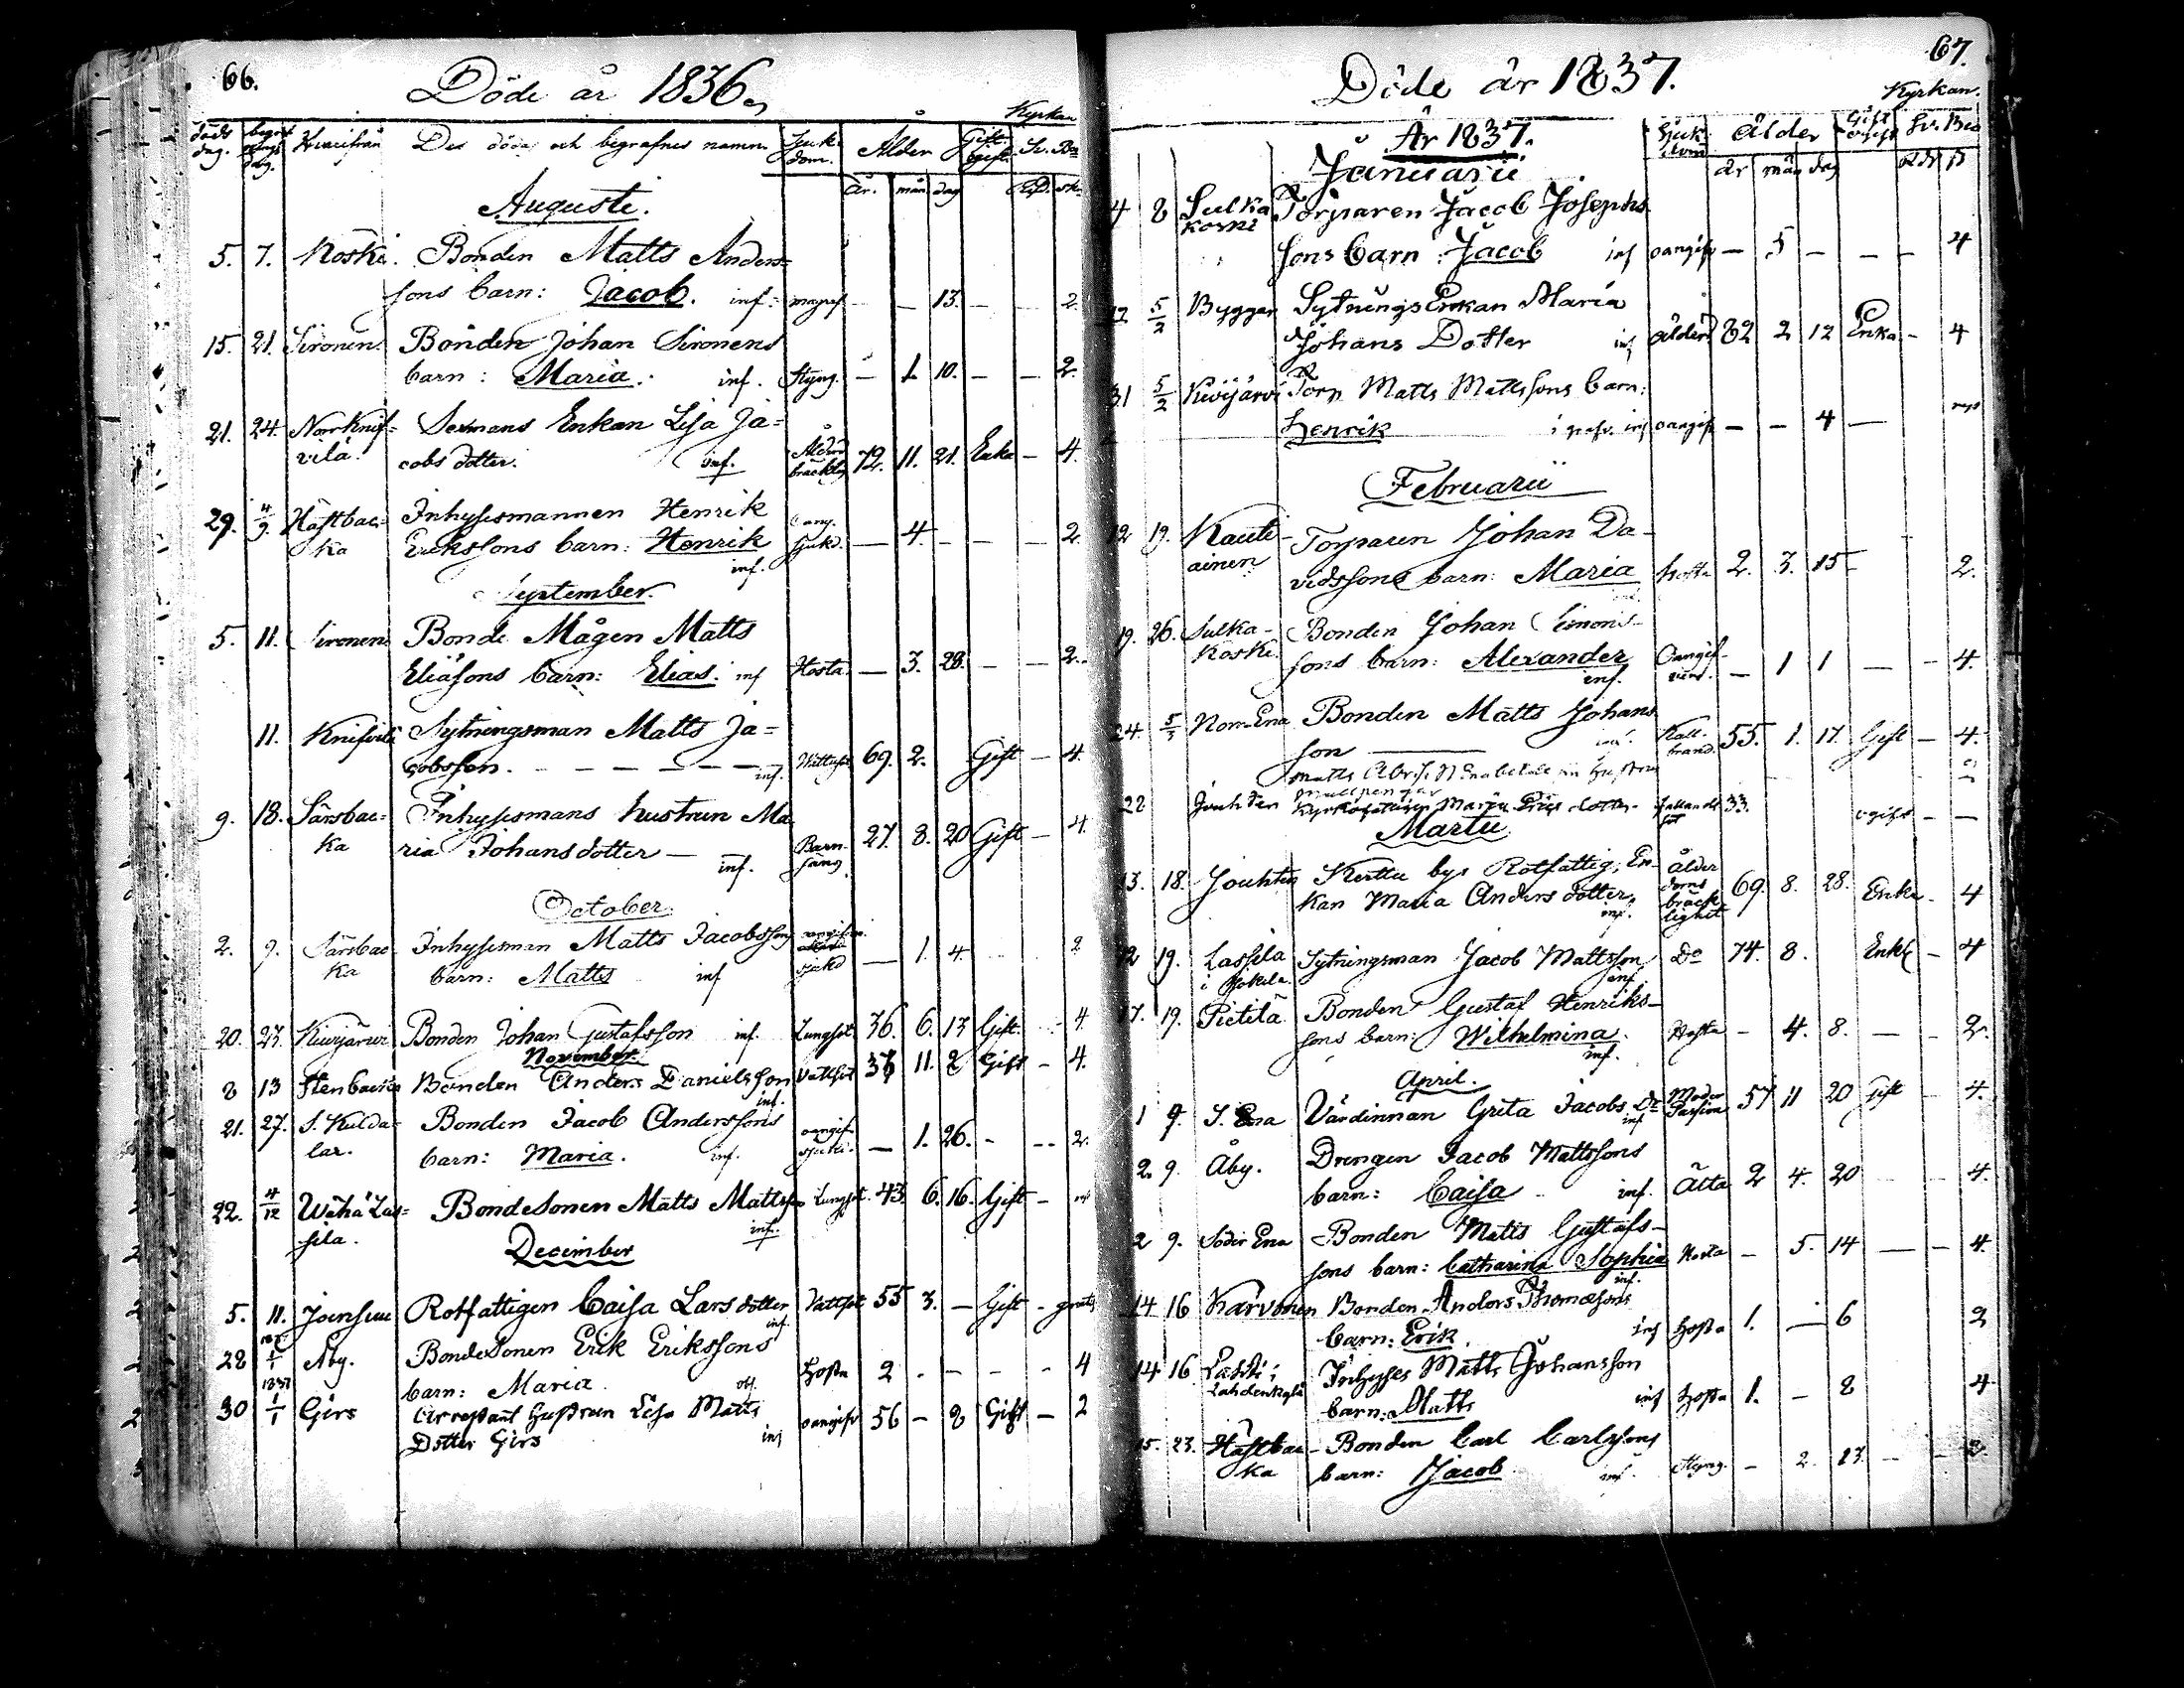 66.
Döde år 1836.
Kyrkan
döds dag. begrafnings dag. Hvarifrån Des döda och begrafnes namn Sjukdom. Ålder Gift ogift Sv. Bo
år. mån dag
Augusti.
5. 7. Koski. Bonden Matts Anders=
sons barn: Jacob. inf. — — 13. — — 2
15. 21. Sironen. Bonden Johan Sironens
barn: Maria. inf. Styng. — 1. 10. — — 2.
21. 24. Norr Knif= Sexmans Enkan Lisa Ja=
vilä. cobs dotter. inf. 72. 11. 21. Enka — 4.
29. 4/9. Häftbac= Inhysesmannen Henrik
ka Erikssons barn: Henrik — 4. — — — 2.
inf.
September.
5. 11. Sironen Bonde Mågen Matts
Eliäsons barn: Elias. inf Hosta. — 3. 28. — — 2.
11. Knifvilä Sytningsman Matts Ja=
cobsson. — — — — — inf. 69. 2. Gift — 4.
9. 18. Särsbac= Inhysesmans hustrun Ma
ka ria Johansdotter — inf. Barnsäng 27. 8. 20 Gift — 4.
October.
2. 9. Särsbac Inhysesman Matts Jacobssons
ka barn: Matts inf sjukd — 1. 4. 2
20. 23. Kiwijärwi Bonden Johan Gustafsson inf. Lungsot 36. 6. 13 Gift. — 4.
November.
8 13 Stenbacka Bonden Anders Danielsson Vattsot 37 11. 2 Gift — 4.
inf.
21. 27. S. Kulda= Bonden Jacob Anderssons
lax. barn: Maria. inf. oangifv. sjukd. — 1. 26. — — 2.
22. 4/12 Wähä Las= Bonde Sonen Matts Mattsson Lungsot. 43. 6. 16. Gift —
sila. inf.
December
5. 11. Joensuu Rotfattigen Caisa Lars dotter Vattsot 55 3. — Gift — gratis
inf.
28 1/1 Åby. Bonde Sonen Erik Erikssons
barn: Maria. Hosta 2 . — — — 4
1837
30 1/1 Girs Arrestant Hustrun Lisa Matts
Dotter Girs inf oangifv 56 — 8 Gift — 2
67.
Döde år 1837.
Kyrkan.
År 1837. Sjukdom Ålder Gift ogift Sv. Bo
Januarii år mån dag
4 8 Sulka Torparen Jacob Josephs
koski sons barn: Jacob inf oangifv — 5 — — — 4
5/2 Byggar Sytnings Enkan Maria
Johans Dotter inf ålder 82 2 12 Enka — 4
31 5/2 Kiwijärvi Torp Matts Mattssons barn:
Henrik inf oangifv — — 4 —
Februarii
12 19. Kauti- Torparen Johan Da-
ainen vidssons barn: Maria hosta 2. 3. 15 — 2.
19. 26. Sulka- Bonden Johan Simons-
koski. sons barn: Alexander Oangif- — 1 1 — — 4.
inf.
24. 5/3 Norr Ena Bonden Matts Johans
son — inf. Kallbrand 55. 1. 17. Gift — 4.
28 Jouhten Maria Eric dotter fallandesot 33. ogift — —
Martii
13. 18. Jouhten Kerttu bys Rotfattig, En- Ålder
kan Maria Anders dotter, doms bräcklighet 69. 8. 28. Enka — 4
inf.
12 19. Lassila Sytningsman Jacob Mattsson Do 74. 8. Enkl — 4
i Jokela. inf
17. 19. Pietilä Bonden Gustaf Henriks-
sons barn: Wilhelmina. Hosta — 4. 8. — — 2.
inf.
April.
1 9. S. Ena Värdinnan Greta Jacobs Dr Moder Passion 57 11 20 Gift — 4.
inf
2. 9. Åby. Drengen Jacob Mattssons
barn: Caisa inf. Älta 2 4. 20 — — 4.
2 9. Söder Ena Bonden Matts Gustafs-
sons barn: Catharina Sophia Hosta — 5. 14 — — 4.
inf.
14 16 Karvonen Bonden Anders Thomæsons
barn: Erik. inf hosta 1. — 6 2
14 16 Inhyses Matts Johansson
barn: Matts inf hosta 1. — 8 4
15. 23. Häftbac- Bonden Carl Carlssons
ka barn: Jacob. inf. Styng. — 2. 13. — — 2.